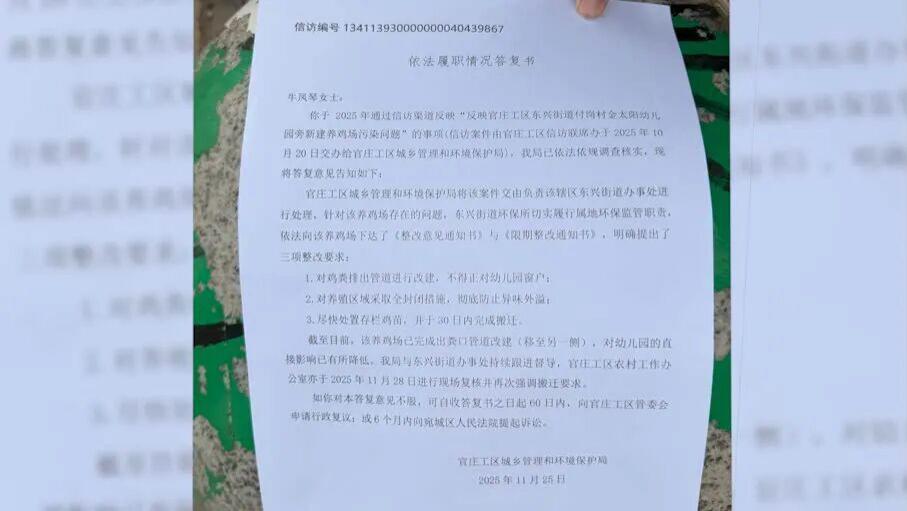 信访编号 134113930000000040439867
依法履职情况答复书
牛凤琴女士：
你于 2025 年通过信访渠道反映“反映官庄工区东兴街道付岗村金太阳幼儿
园旁新建养鸡场污染问题”的事项(信访案件由官庄工区信访联席办于 2025 年 10
月 20 日交办给官庄工区城乡管理和环境保护局)，我局已依法依规调查核实，现
将答复意见告知如下：
官庄工区城乡管理和环境保护局将该案件交由负责该辖区东兴街道办事处进
行处理，针对该养鸡场存在的问题，东兴街道环保所切实履行属地环保监管职责，
依法向该养鸡场下达了《整改意见通知书》与《限期整改通知书》，明确提出了
三项整改要求：
1.对鸡粪排出管道进行改建，不得正对幼儿园窗户；
2.对养殖区域采取全封闭措施，彻底防止异味外溢；
3.尽快处置存栏鸡苗，并于 30 日内完成搬迁。
截至目前，该养鸡场已完成出粪口管道改建（移至另一侧），对幼儿园的直
接影响已有所降低。我局与东兴街道办事处持续跟进督导，官庄工区农村工作办
公室亦于 2025 年 11 月 28 日进行现场复核并再次强调搬迁要求。
如你对本答复意见不服，可自收答复书之日起 60 日内，向官庄工区管委会
申请行政复议；或 6 个月内向宛城区人民法院提起诉讼。
官庄工区城乡管理和环境保护局
2025 年 11 月 25 日